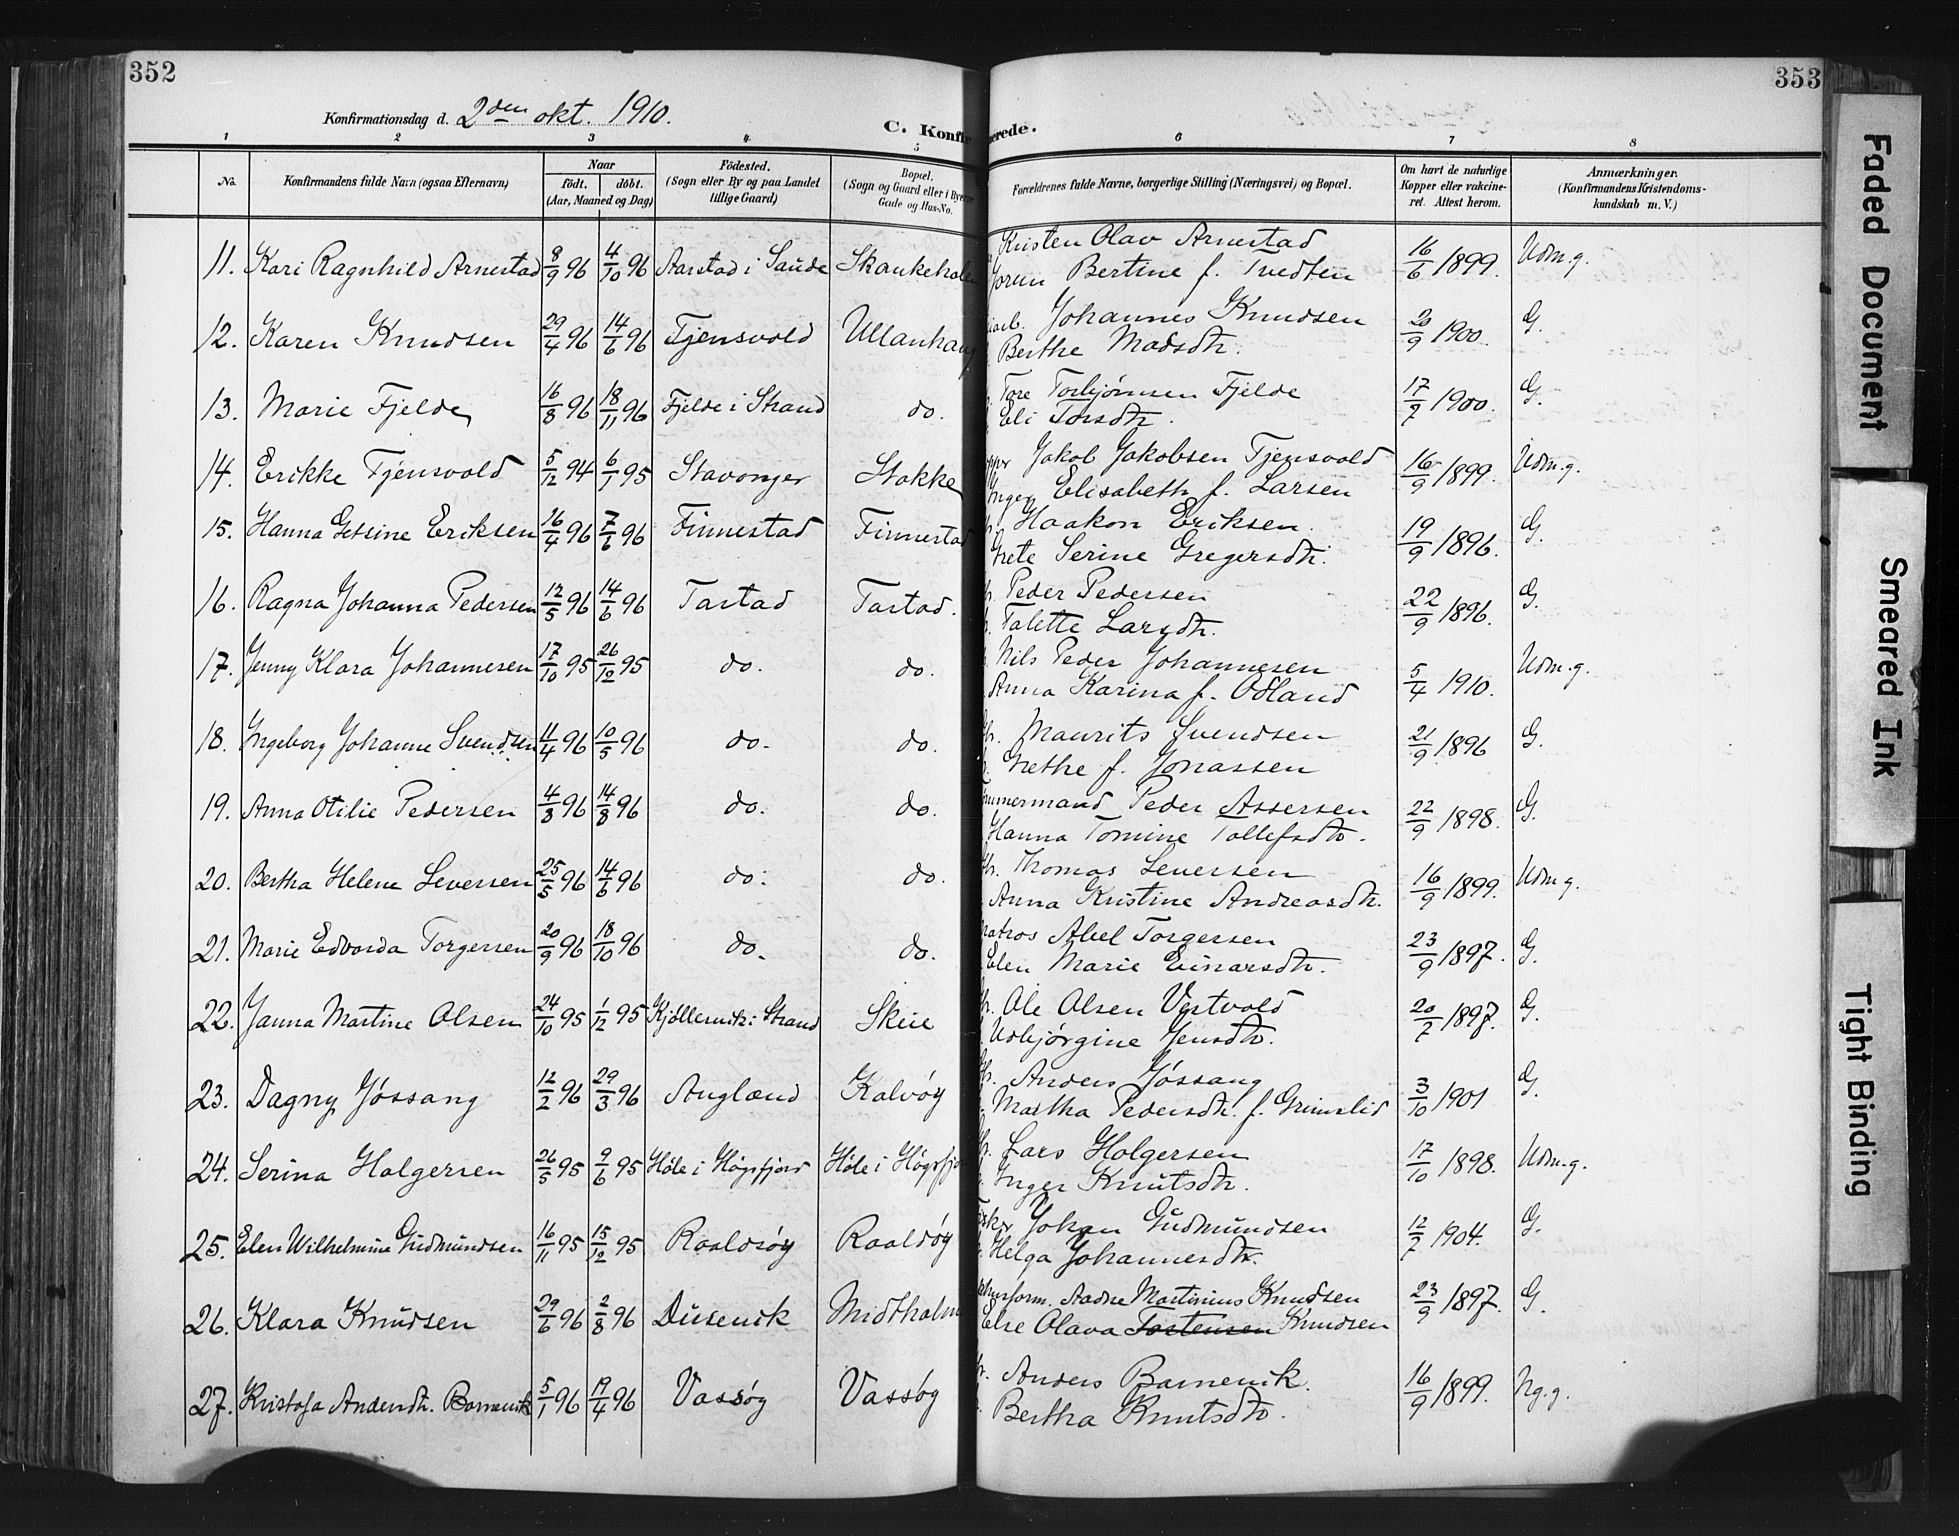 352
353
Konfirmationsdag d. 2den okt. 1910.
C. Konfir merede.
1 2 3 4 5 6 7 8
No.
Konfirmandens fulde Navn (ogsaa Efternavn)
Naar
født. døbt.
(Aar, Maaned og Dag)
Födested.
(Sogn eller By og paa Landet
tillige Gaard)
Bopæl.
(Sogn og Gaard eller i Byerne
Gade og Hus-No.
Forældrenes fulde Navne, borgerlige Stilling (Næringsvei) og Bopæl.
Om havt de naturlige
Kopper eller vakcine-
ret. Attest herom.
Anmærkninger.
(Konfirmandens Kristendoms-
kundskab m. V.)
11. Kari Ragnhild Arnestad 8/9 96 4/10 96 Aarstad i Saude Skankeholen Kristen Olav Arnestad 16/6 1899. Udm.g.
Jorun Bertine f. Tvedten
12. Karen Knudsen 29/4 96 14/6 96 Tjensvold Ullanhaug Johannes Knudsen 20/9 1900. G.
Berthe Madsdtr.
13. Marie Fjelde 16/8 96 18/11 96 Fjelde i Strand do. Tore Torbjørnsen Fjelde 17/7 1900. G.
Eli Torsdtr.
14. Erikke Tjensvold 5/12 94 6/1 95 Stavanger Stokke Jakob Jakobsen Tjensvold 16/9 1899. Udm.g.
Inger Elisabeth f. Larsen
15. Hanna Getsine Eriksen 16/4 96 7/6 96 Finnestad Finnestad Haakon Eriksen. 19/9 1896. G.
Grete Serine Gregersdtr.
16. Ragna Johanna Pedersen 12/5 96 14/6 96 Tastad Tastad. Peder Pedersen 22/9 1896. G.
Talette Larsdtr.
17. Jenny Klara Johannesen 17/10 95 26/12 95 do. do. Nils Peder Johannesen 5/4 1910. Udm.g.
Anna Karina f. Odland
18. Ingeborg Johanne Svendsen 11/4 96 10/5 96 do. do. Maurits Svendsen 21/9 1896 G.
Grethe f. Jonassen
19. Anna Otilie Pedersen 4/8 96 14/8 96 do. do. Tømmermand Peder Assersen 22/9 1898. G.
Hanna Tomine Tollefsdtr.
20. Bertha Helene Seversen 25/5 96 14/6 96 do. do. Thomas Seversen 16/9 1899. Udm.g.
Anna Kristine Andreasdtr.
21. Marie Edvarda Torgersen 20/9 96 18/10 96 do. do. Matros Abel Torgersen 23/9 1897. G.
Elen Marie Einarsdtr.
22. Janna Martine Olsen 24/10 95 1/12 95 Kjøllervik i Strand Skeie Ole Olsen Vestvold 20/7 1897. G.
Asbjørgine Jensdtr.
23. Dagny Jøssang 12/2 96 29/3 96 Augland Kalvøy Anders Jøssang 3/10 1901 G.
Martha Pedersdtr. f. Grimslid
24. Serina Holgersen 26/5 95 9/6 95 Høle i Høgsfjord Høle i Høgsfjo Lars Holgersen 17/10 1898. Udm.g.
Inger Knutsdtr.
25. Elen Wilhelmine Gudmundsen 16/11 95 15/12 95 Roaldsøy Roaldøy Fisker Johan Gudmundsen 12/7 1904. G.
Helga Johannesdtr.
26. Klara Knudsen 29/6 96 2/8 96 Dusevik Midtholm Aadne Martinius Knudsen 23/9 1897. G.
Else Olava Tostensen Knudsen
27. Kristofa Andersdtr. Barnevik 5/1 96 19/4 96 Vassøy Vassøy Anders Barnevik. 16/9 1899. Ng.g.
Bertha Knutsdtr.
Faded Document
Smeared Ink
Tight Binding